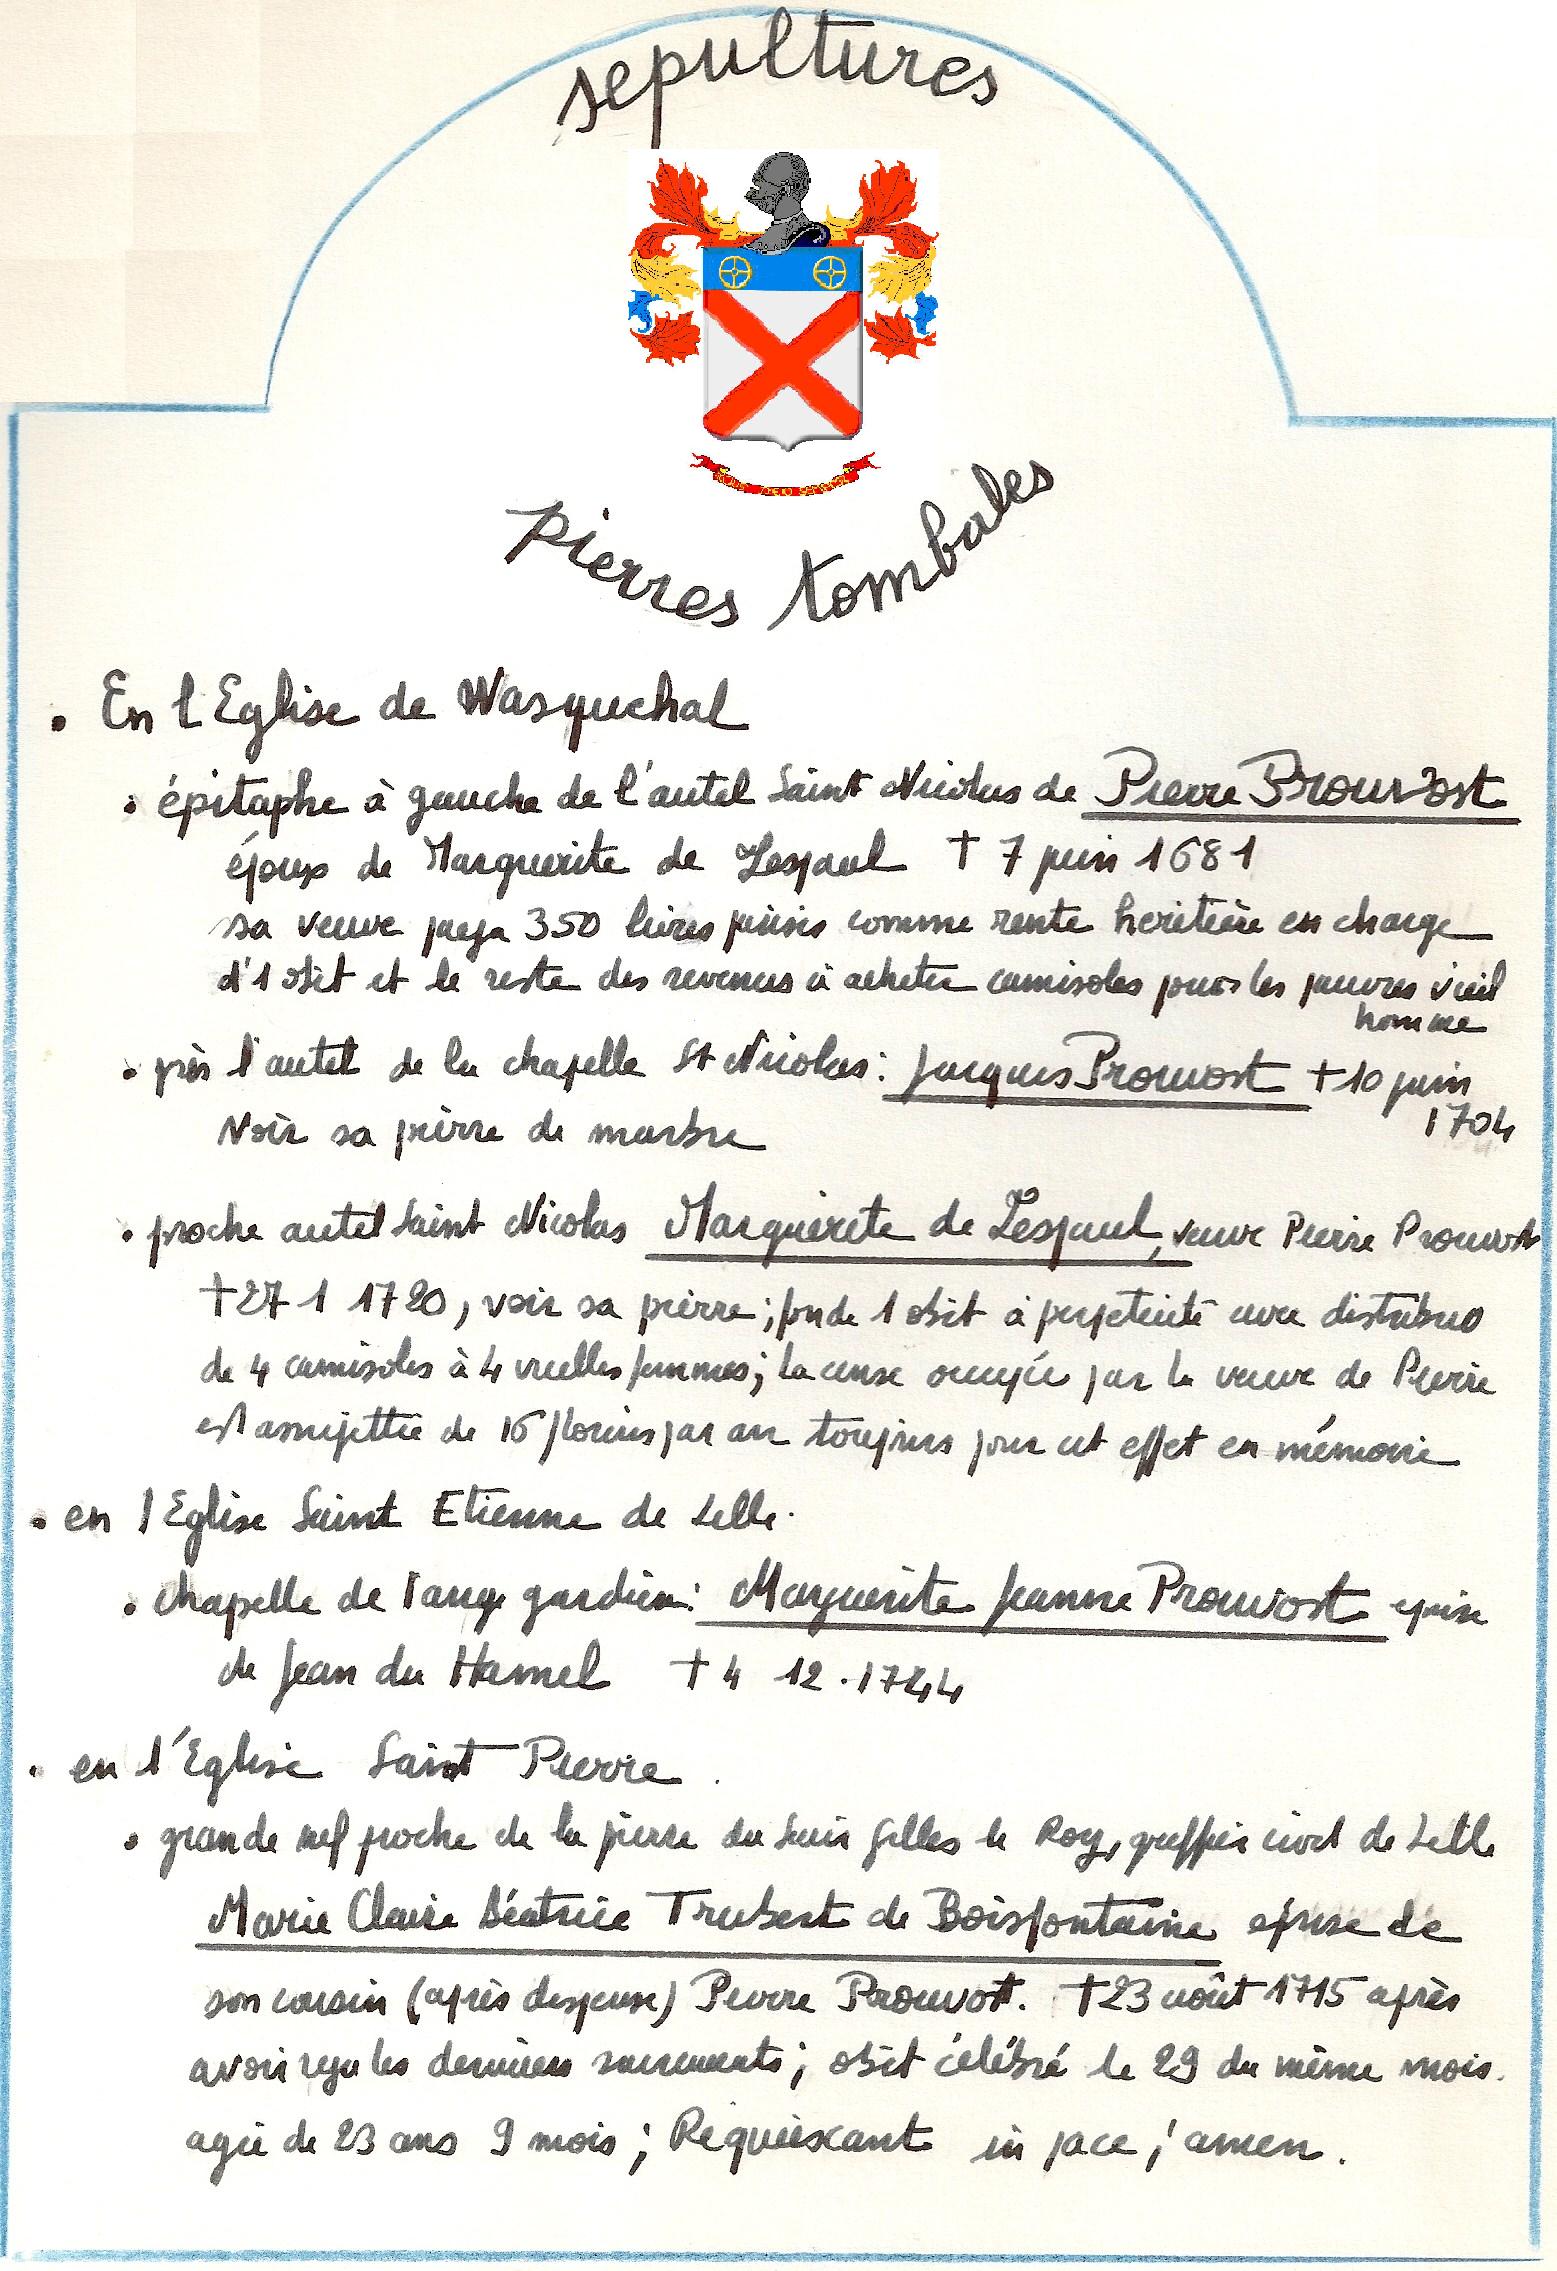 sepultures
pierres tombales
. En l'Eglise de Wasquehal
. épitaphe à gauche de l'autel Saint Nicolas de Pierre Prouvost
époux de Marguerite de Lespaul † 7 juin 1681
sa veuve paya 350 livres parisis comme rente heritière en charge
d'1 obit et le reste des revenus à acheter camisoles pour les pauvres vieil
homme
. près l'autel de la chapelle St Nicolas : Jacques Prouvost † 10 juin
1704
Voir sa pierre de marbre
. proche autel Saint Nicolas Marguerite de Lespaul, veuve Pierre Prouvost
† 27 1 1720, voir sa pierre ; fonde 1 obit à perpetuité avec distribuo
de 4 camisoles à 4 vieilles femmes ; la cense occupée par la veuve de Pierre
est assujettie de 16 florins par an toujours pour cet effet en mémoire
. en l'Eglise Saint Etienne de Lille.
. chapelle de l'ange gardien : Marguerite Jeanne Prouvost epouse
de Jean du Hamel † 4 12.1744
. en l'Eglise Saint Pierre .
. grande nef proche de la pierre du Sieur Gilles le Roy, greffier civil de Lille
Marie Claire Béatrice Trubert de Boisfontaine epouse de
son cousin (après dispense) Pierre Prouvost. † 23 août 1715 après
avoir reçu les derniers sacrements ; obit célébré le 29 du même mois.
agée de 23 ans 9 mois ; Requiescant in pace ; amen.